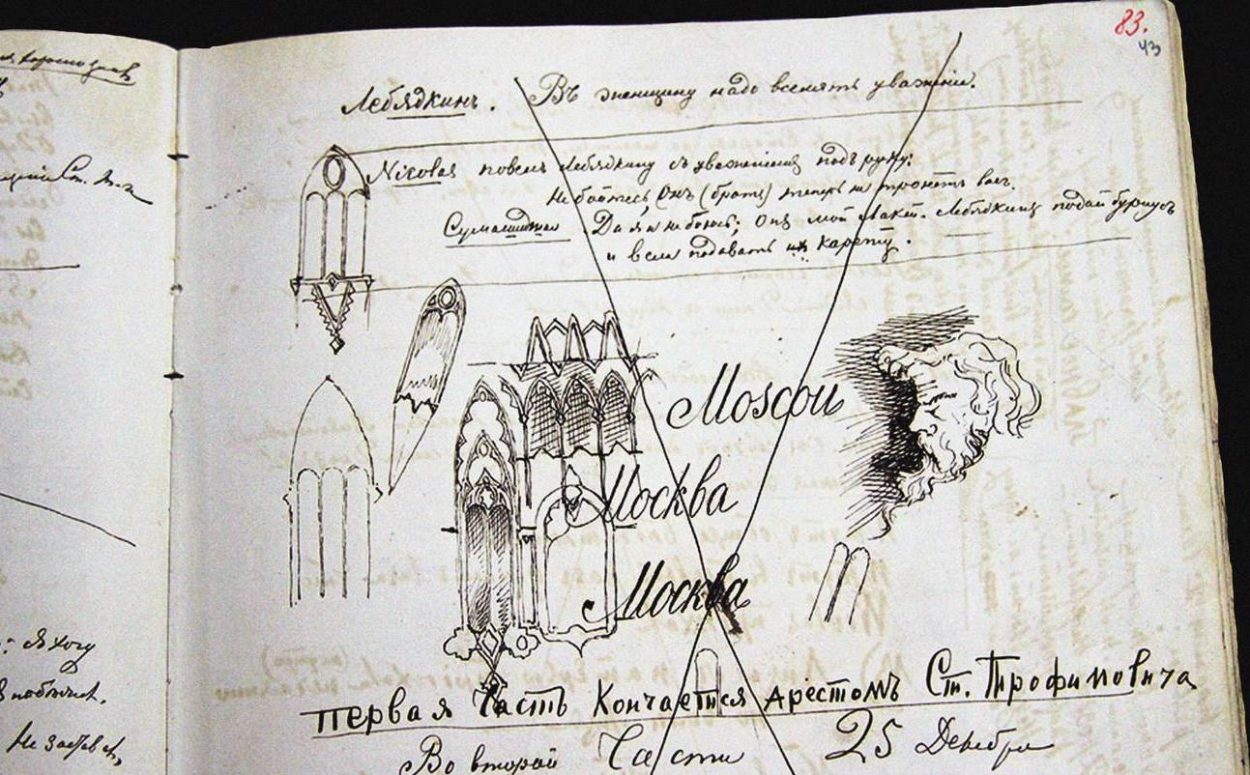 83.
43
Лебядкинъ. Въ женщину надо вселять уваженіе.
Nicolas повелъ Лебядкину съ уваженіемъ подъ руку:
Не бойтесь, Онъ (братъ) теперь не тронетъ васъ.
Сумашедшая. Да я и не боюсь; Онъ мой Лакей. Лебядкинъ подай бурнусъ
и вели подавать карету.
Moscou
Москва
Москва
первая Часть Кончается арестомъ Ст. Трофимовича
Во второй Части 25 Декабря
: Я хочу